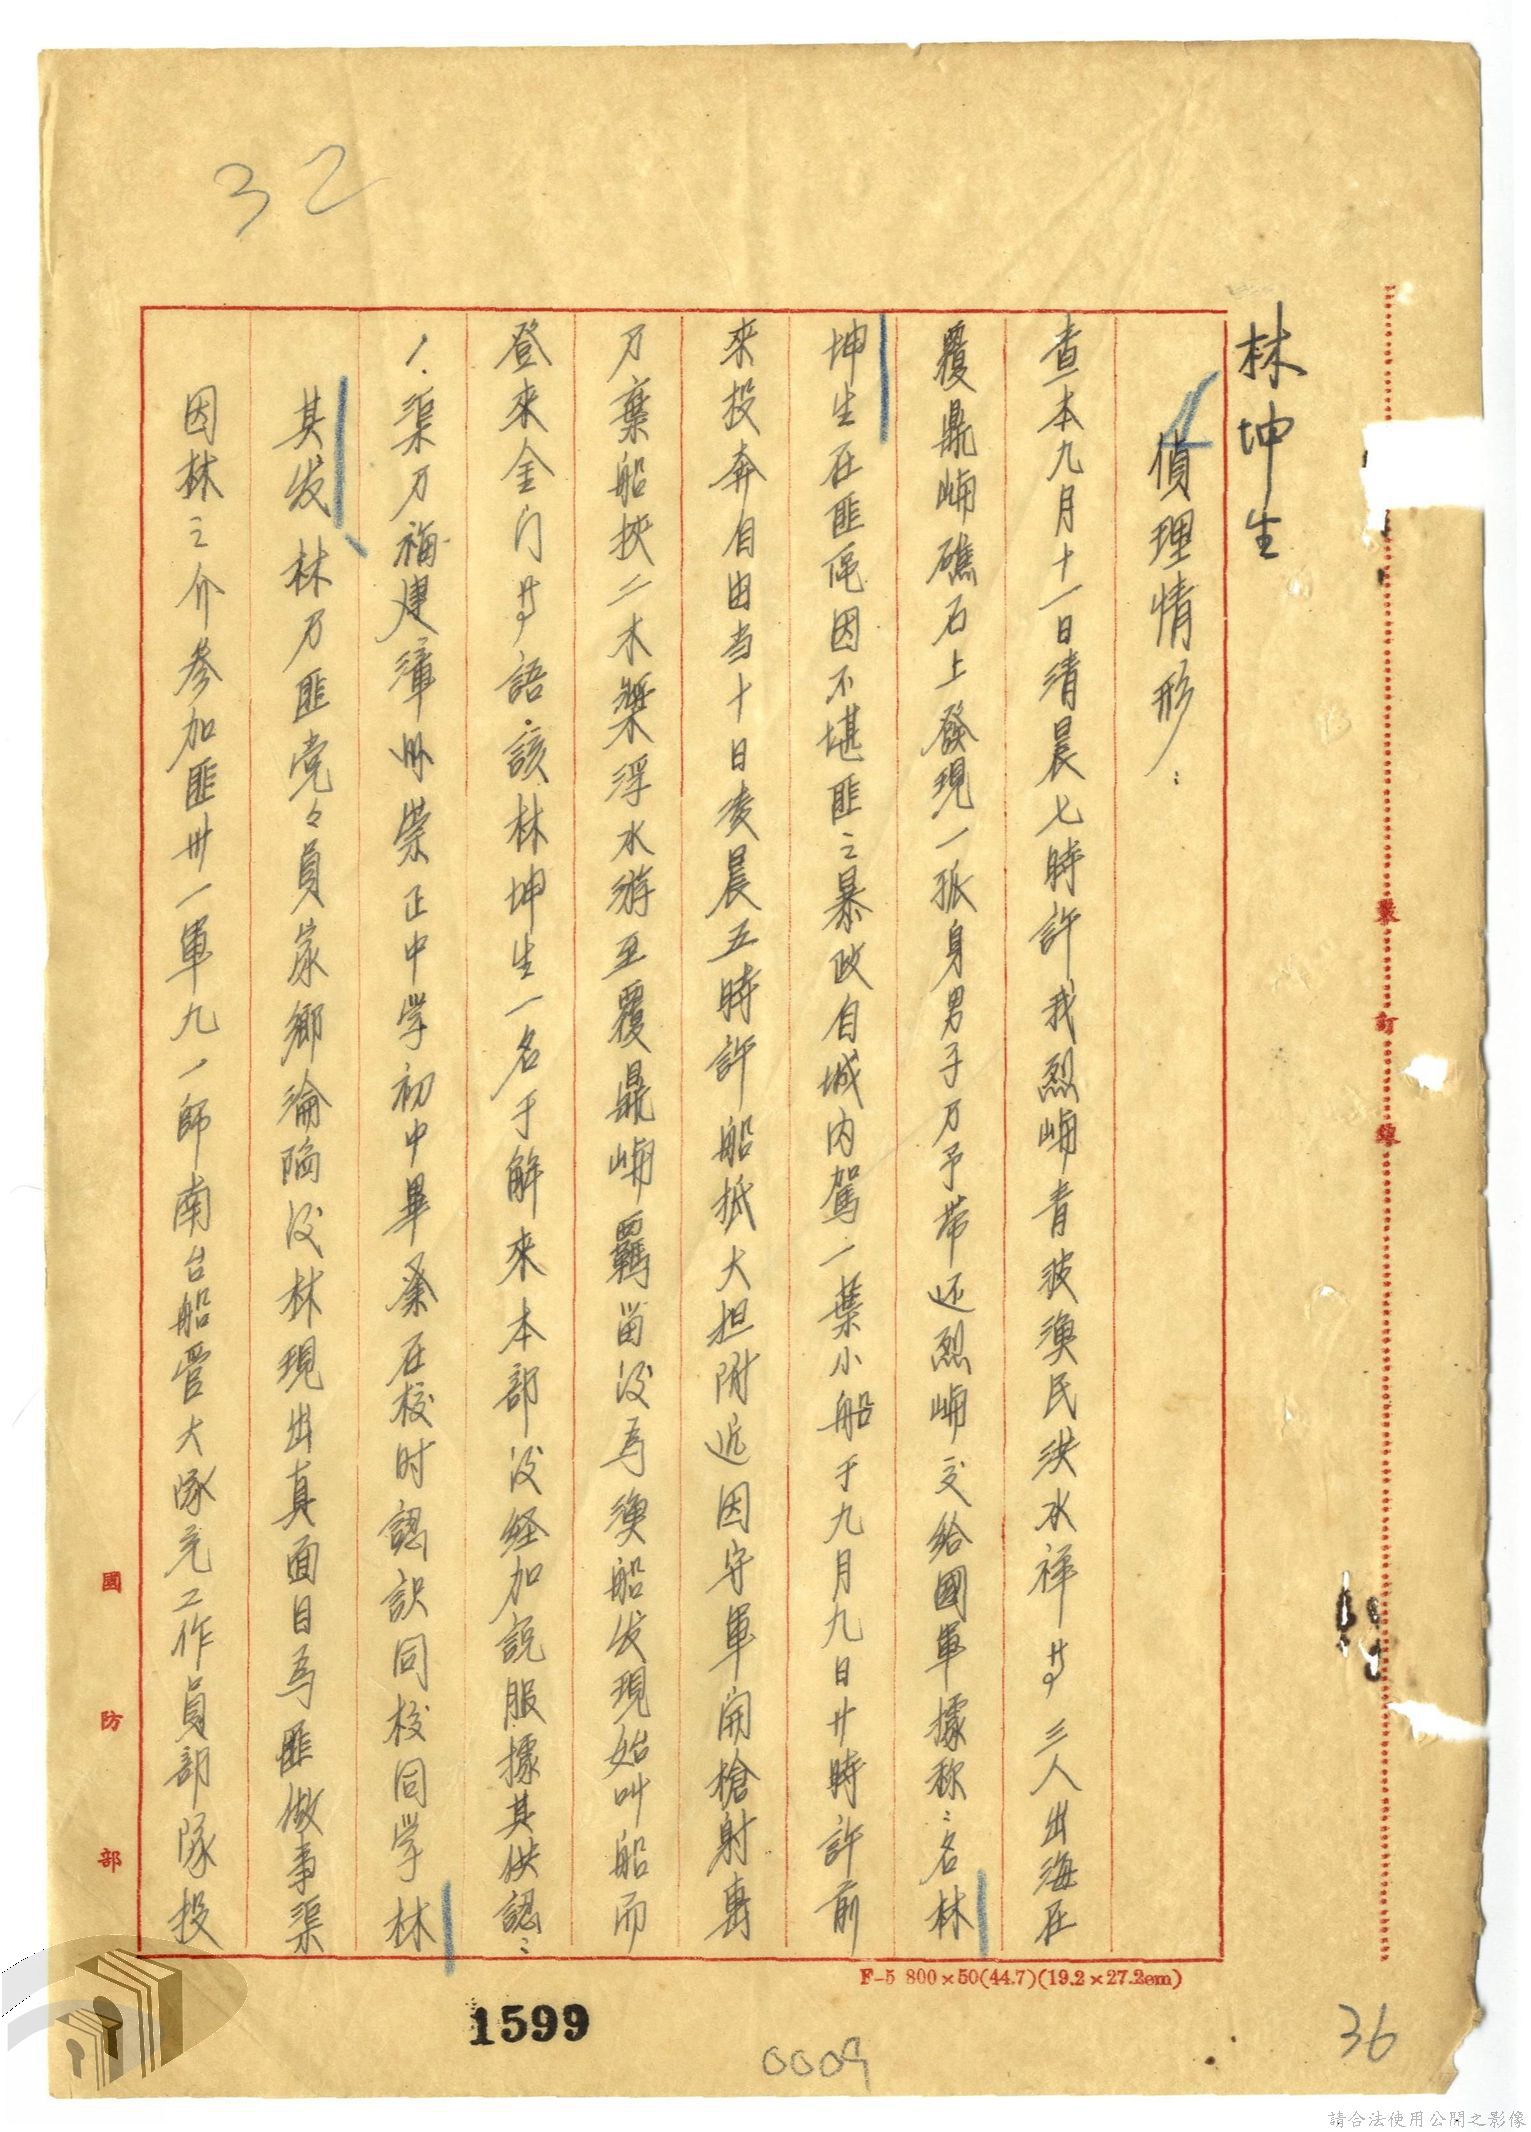 32
林坤生
偵理情形：
查本九月十一日清晨七時許我烈嶼青岐漁民洪水祥等三人出海在
覆鼎嶼礁石上發現一孤身男子乃予带还烈嶼交給國軍據称：名林
坤生在匪區因不堪匪之暴政自城内駕一葉小船于九月九日廿時許前
來投奔自由当十日凌晨五時許船抵大担附近因守軍開槍射擊
乃棄船挾二木槳浮水游至覆鼎嶼羈留後为漁船发現始叫船而
登來金门等語。該林坤生一名于解來本部後经加説服據其供認：
1.渠乃福建漳州崇正中学初中畢業在校时認識同校同学林
其发林乃匪党々員家鄉淪陷後林現出真面目为匪做事渠
因林之介參加匪卅一軍九一師南台船管大隊充工作員部隊投
裝
訂
線
國防部
F-5 800×50(44.7)(19.2×27.2em)
1599
0009
36
請合法使用公開之影像